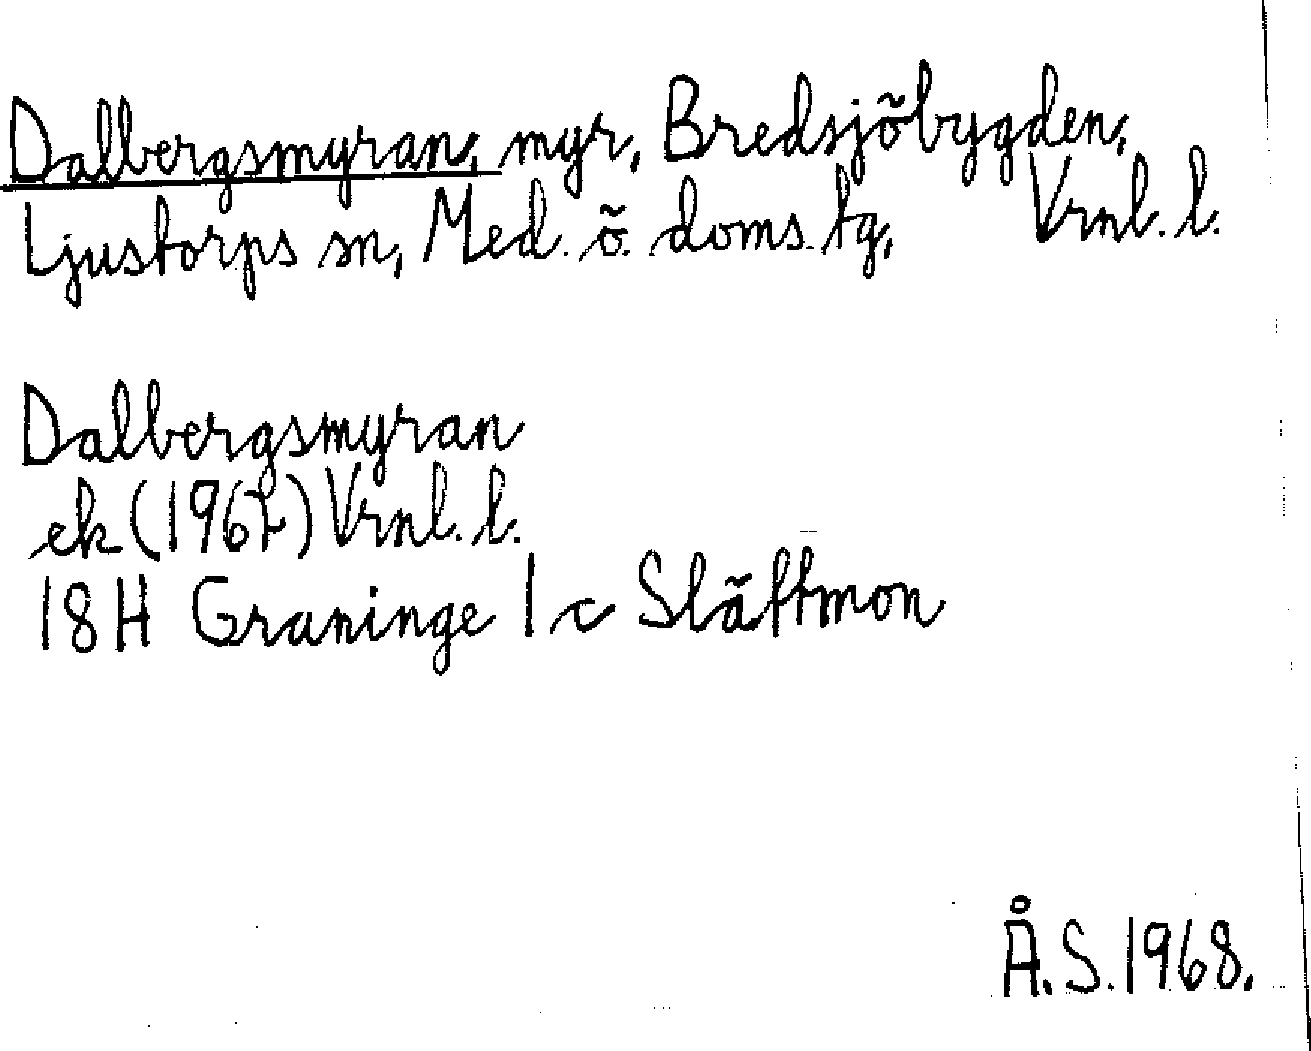 Dalbergsmyran, myr, Bredsjöbygden,
Ljustorps sn, Med. ö. doms. tg, Vrnl. l.
Dalbergsmyran
ek (1967) Vrnl. l.
18H Graninge 1 c Slättmon
Å.S. 1968.